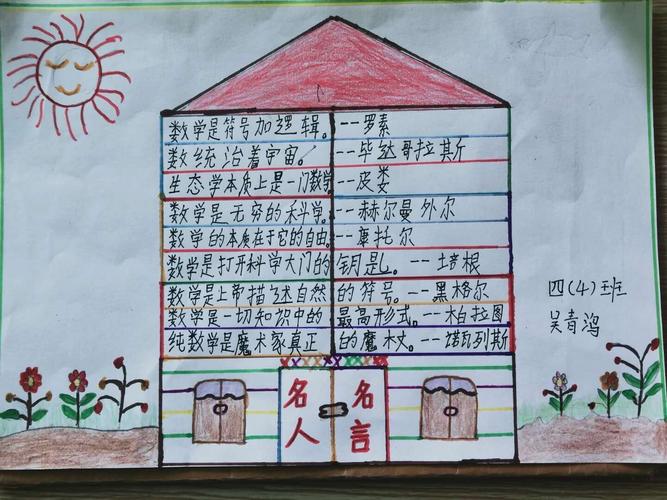 数学是符号加逻辑。--罗素
数统治着宇宙。--毕达哥拉斯
生态学本质上是一门数学--皮娄
数学是无穷的科学。--赫尔曼外尔
数学的本质在于它的自由。--康托尔
数学是打开科学大门的钥匙。--培根
数学是上帝描述自然的符号。--黑格尔
数学是一切知识中的最高形式。--柏拉图
纯数学是魔术家真正的魔杖。--诺瓦列斯
四(4)班
名人
名言